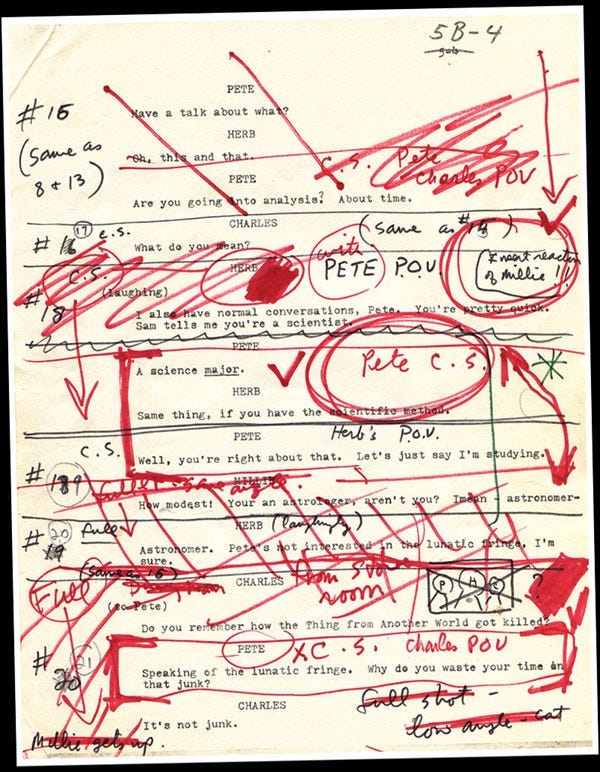 5B-4
PETE
#15
Have a talk about what?
HERB
(same as
8 & 13)
Oh, this and that.
C.S. Pete
Charles POV
PETE
Are you going into analysis? About time.
CHARLES
(same as #15)
17 C.S.
#16
What do you mean?
HERB
with
PETE P.O.V.
Insert reaction
of Millie!!
C.S.
(laughing)
#18
I also have normal conversations, Pete. You're pretty quick.
Sam tells me you're a scientist.
PETE
Pete C.S.
A science major.
HERB
Same thing, if you have the scientific method.
PETE
Herb's P.O.V.
C.S.
Well, you're right about that. Let's just say I'm studying.
MILLIE
#19
full same angle.
How modest! Your an astrologer, aren't you? Imean - astronomer-
20 full
HERB (laughingly)
#19
Astronomer. Pete's not interested in the lunatic fringe, I'm
sure.
(same as 16)
CHARLES
from
room
P H C ?
Full
(to Pete)
Do you remember how the Thing from Another World got killed?
PETE
C.S. Charles POV
#20 21
Speaking of the lunatic fringe. Why do you waste your time on
that junk?
CHARLES
full shot -
low angle - cat
It's not junk.
Millie gets up.